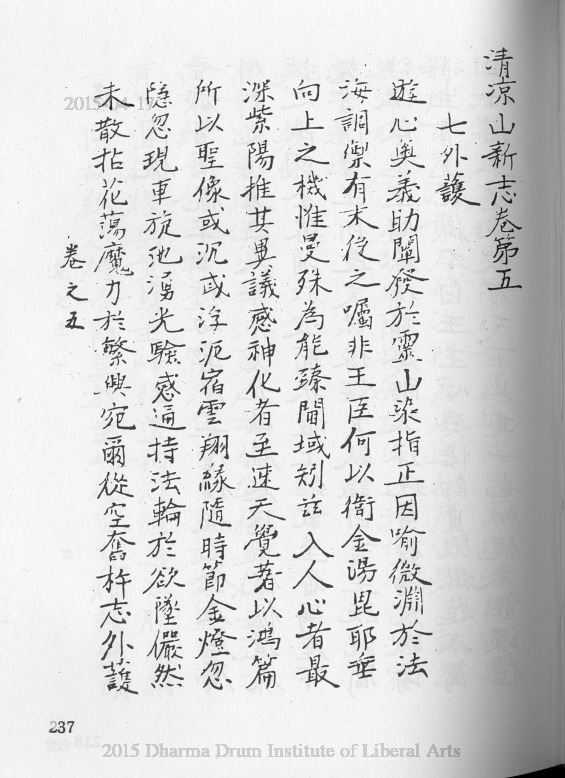 清凉山新志卷第五
七外護
遊心奧義助闡發於靈山染指正因喻微淵於法
海調御有末後之囑非王臣何以衞金湯毘耶垂
向上之機惟曼殊為能臻閫域矧玆入人心者最
深紫陽推其異議感神化者至速天覺著以鴻篇
所以聖像或沉或浮泥宿雲翔緣隨時節金燈忽
隱忽現車旋池湧光驗感通持法輪於欲墜儼然
未散拈花蕩魔力於繁興宛爾從空奮杵志外護
卷之五
237
2015-04-17
2015 Dharma Drum Institute of Liberal Arts